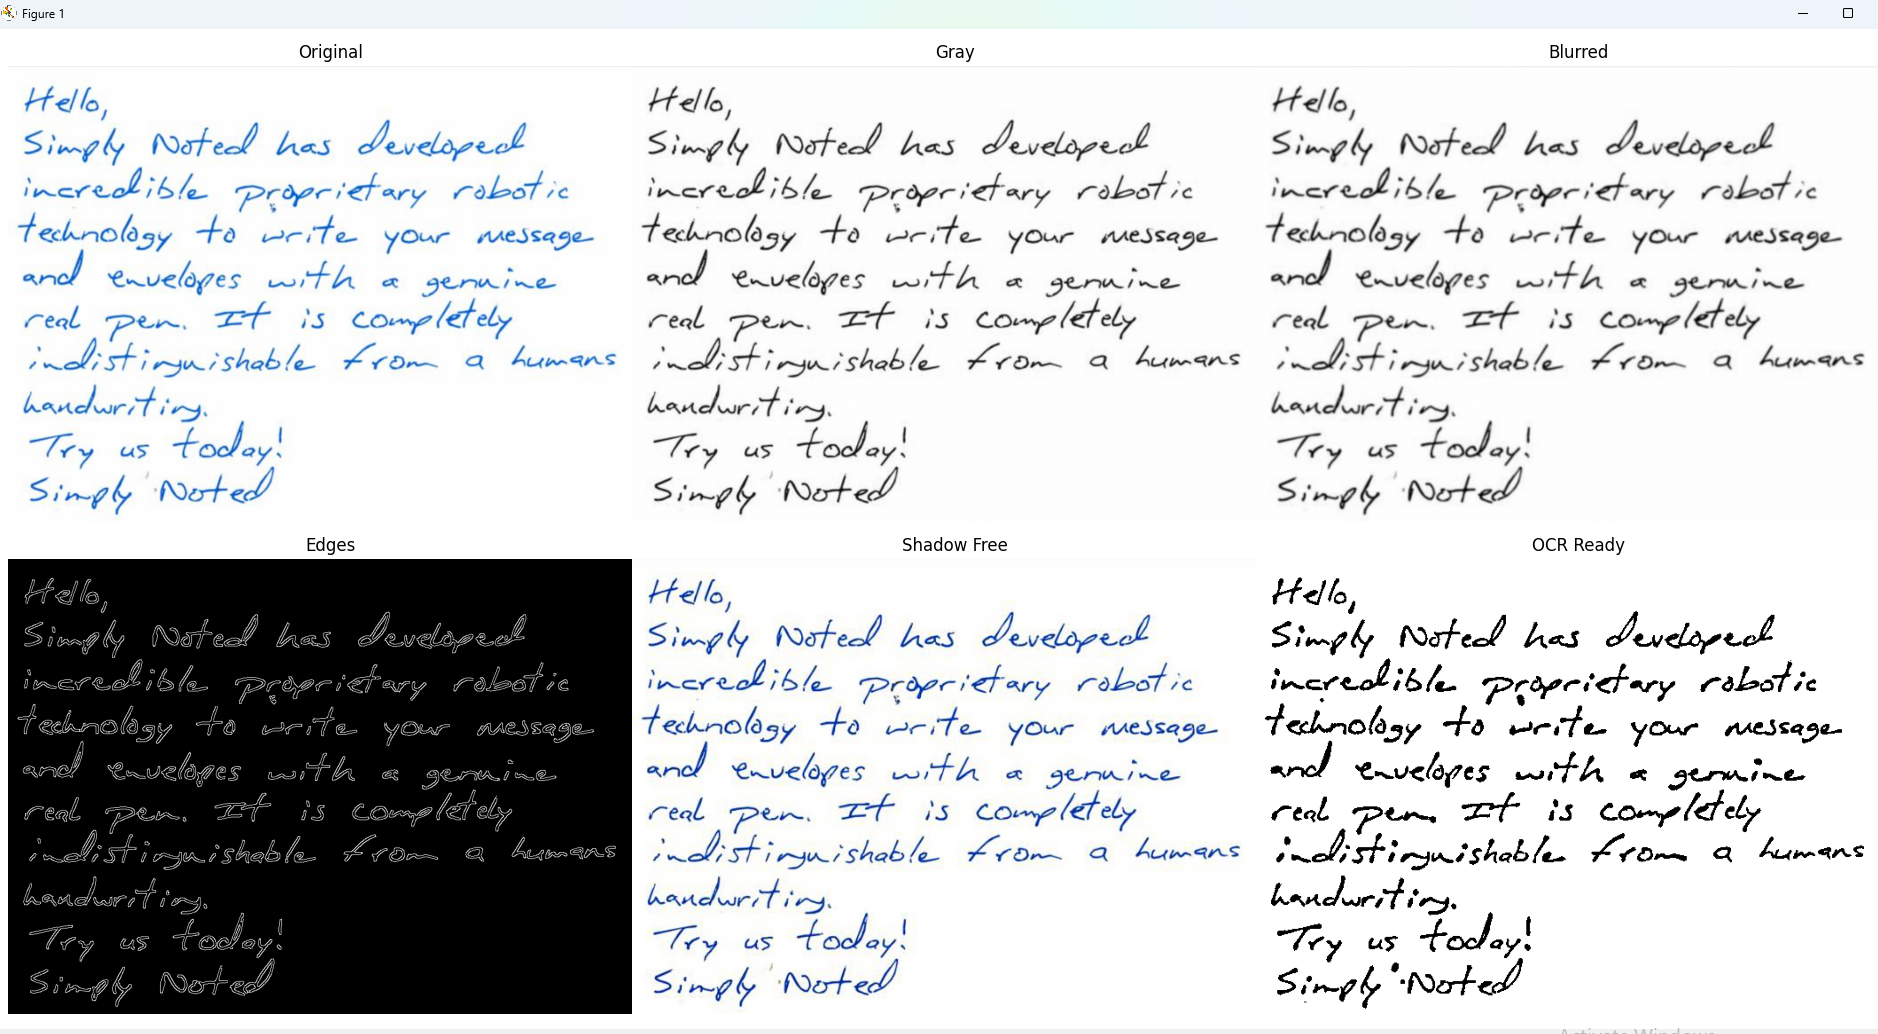 Figure 1
Original
Gray
Blurred
Hello,
Simply Noted has developed
incredible proprietary robotic
technology to write your message
and envelopes with a genuine
real pen. It is completely
indistinguishable from a humans
handwriting.
Try us today!
Simply Noted
Hello,
Simply Noted has developed
incredible proprietary robotic
technology to write your message
and envelopes with a genuine
real pen. It is completely
indistinguishable from a humans
handwriting.
Try us today!
Simply Noted
Hello,
Simply Noted has developed
incredible proprietary robotic
technology to write your message
and envelopes with a genuine
real pen. It is completely
indistinguishable from a humans
handwriting.
Try us today!
Simply Noted
Edges
Shadow Free
OCR Ready
Hello,
Simply Noted has developed
incredible proprietary robotic
technology to write your message
and envelopes with a genuine
real pen. It is completely
indistinguishable from a humans
handwriting.
Try us today!
Simply Noted
Hello,
Simply Noted has developed
incredible proprietary robotic
technology to write your message
and envelopes with a genuine
real pen. It is completely
indistinguishable from a humans
handwriting.
Try us today!
Simply Noted
Hello,
Simply Noted has developed
incredible proprietary robotic
technology to write your message
and envelopes with a genuine
real pen. It is completely
indistinguishable from a humans
handwriting.
Try us today!
Simply Noted
Activate Windows